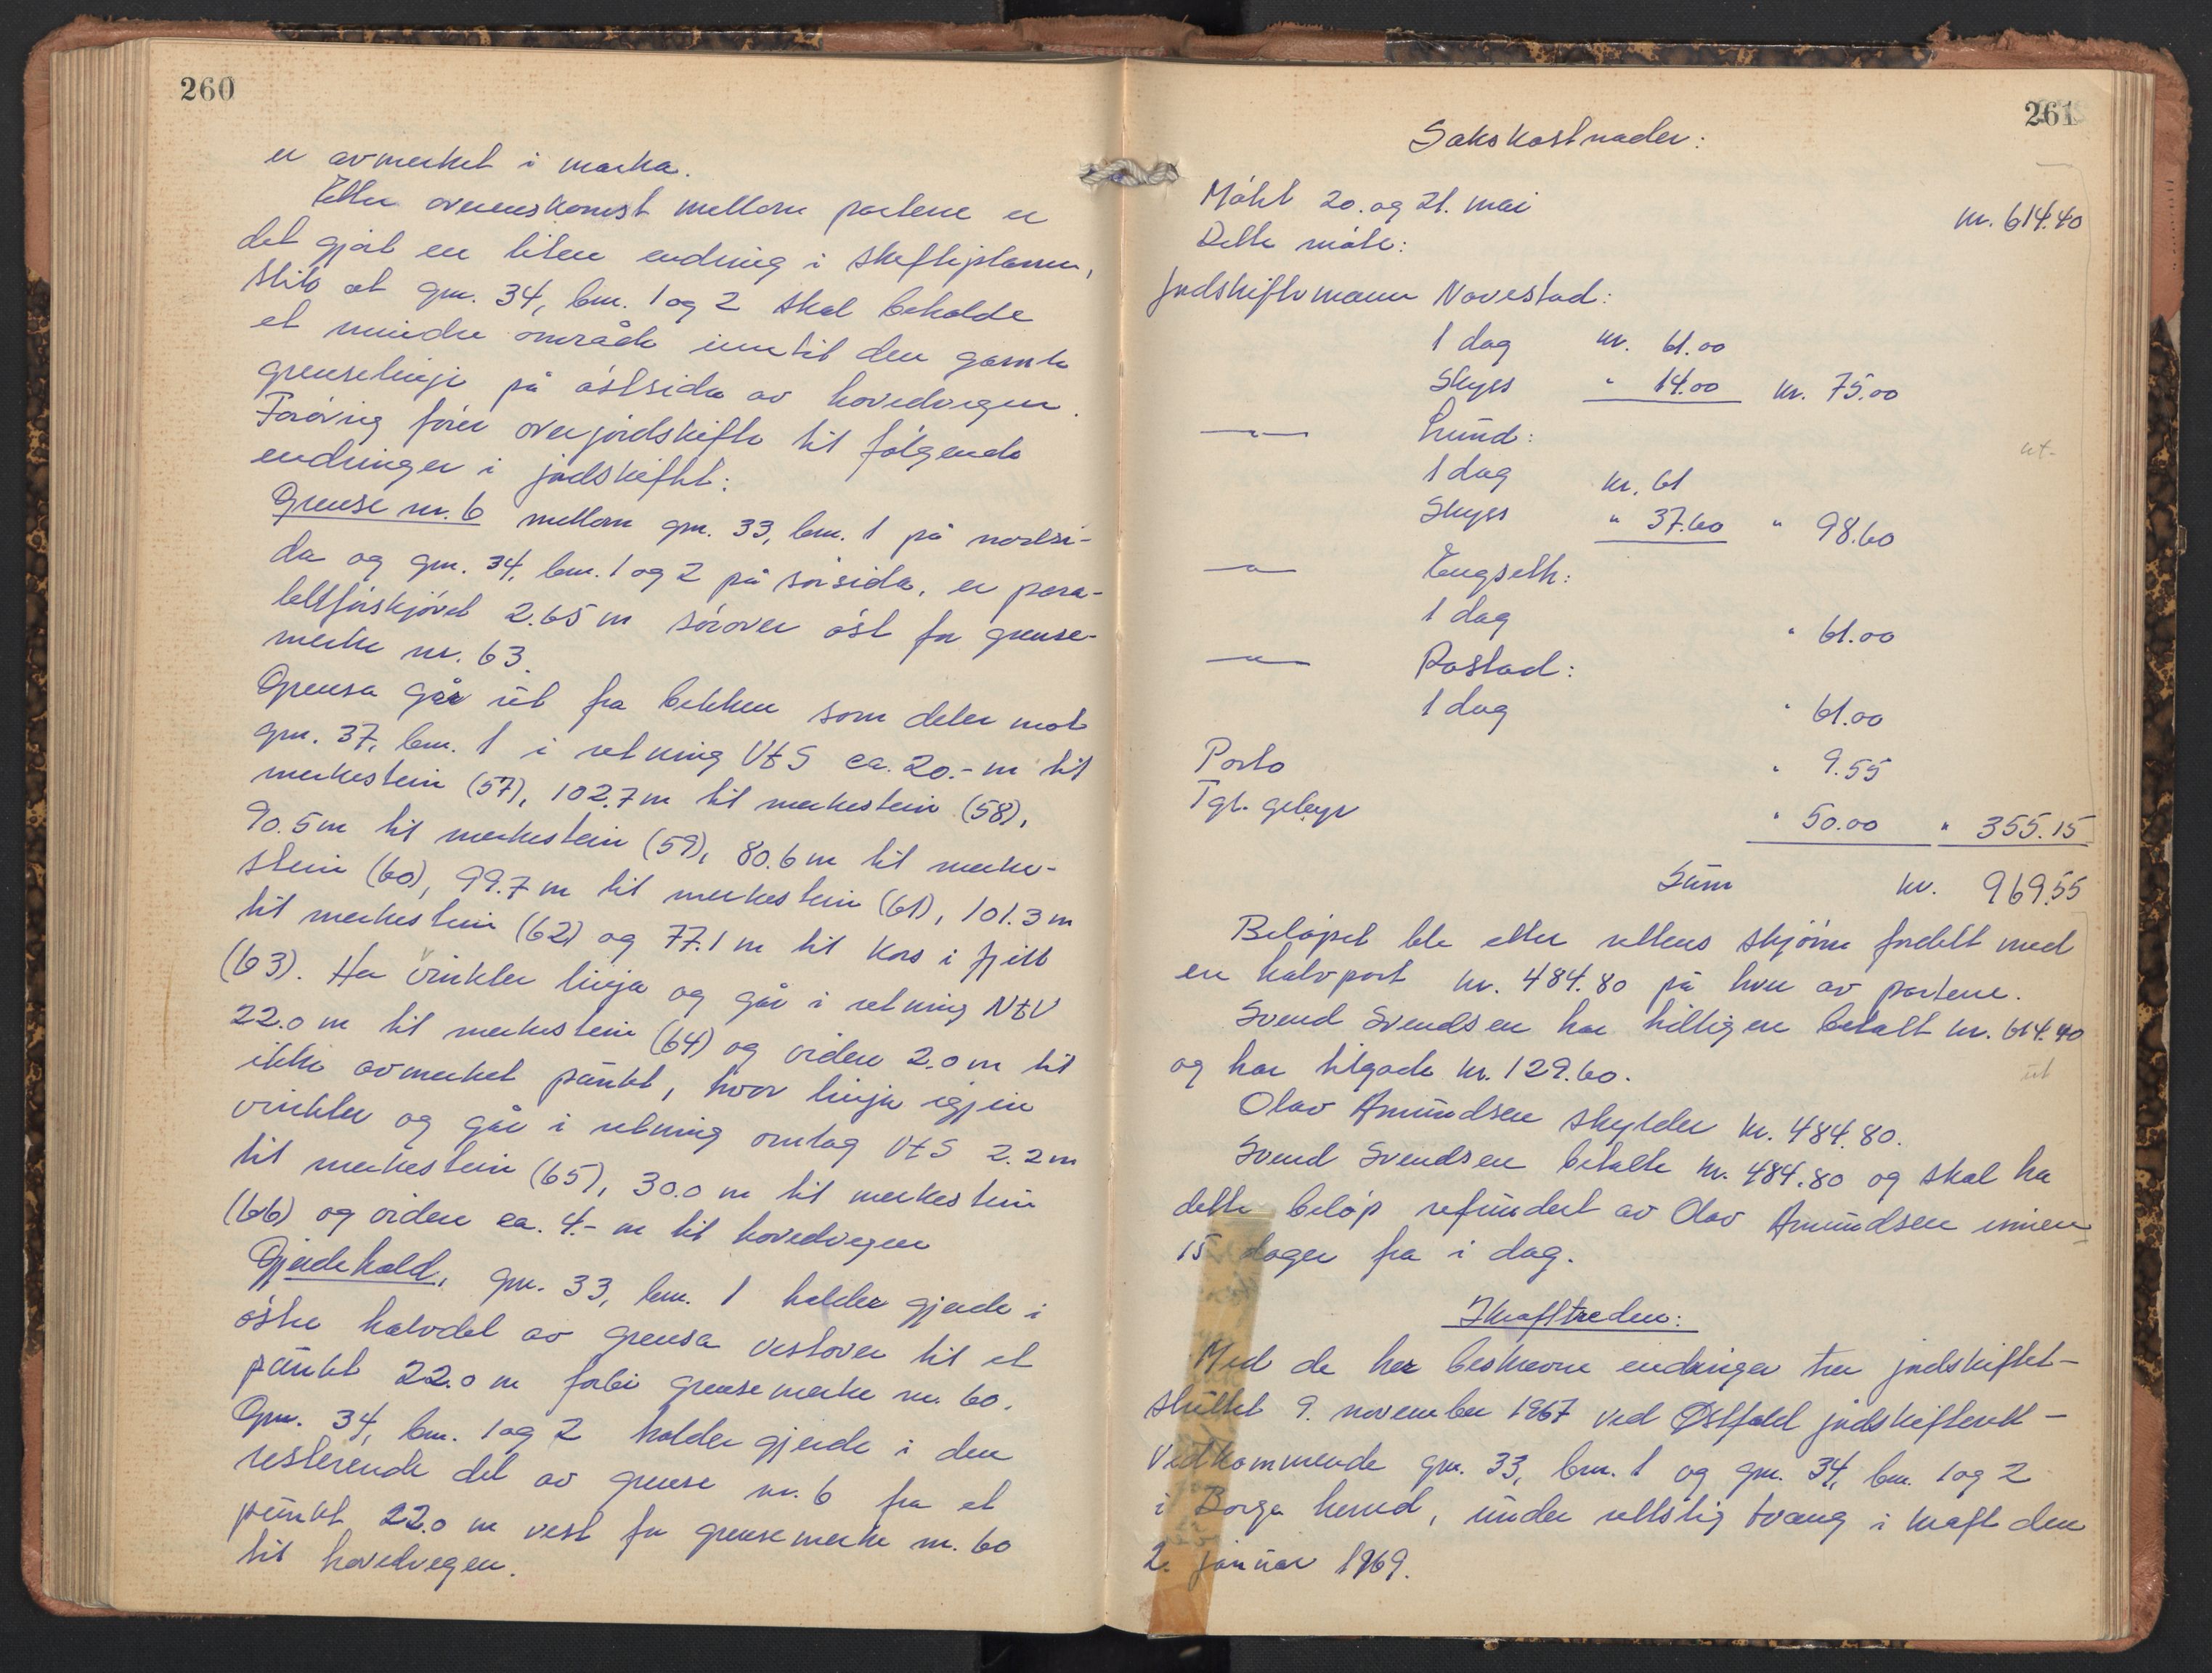 260
er avmerket i marka.
Etter overenskomst mellom partene er
det gjort en liten endring i skifteplanen,
slik at gnr. 34, bnr. 1 og 2 skal beholde
et mindre område inntil den gamle
grenselinje på østsida av hovedvegen.
Forøvrig fører overjordskifte til følgende
endringer i jordskiftet:
Grense nr. 6 mellom gnr. 33, bnr. 1 på nordsi-
da og gnr. 34, bnr. 1 og 2 på sørsida, er para-
lellforskjøvet 2.65 m sørover øst for grense-
merke nr. 63.
Grensa går ut fra bekken som deler mot
gnr. 37, bnr. 1 i retning VtS ca. 20.- m til
merkestein (57), 102.7 m til merkestein (58),
90.5 m til merkestein (59), 80.6 m til merke-
stein (60), 99.7 m til merkestein (61), 101.3 m
til merkestein (62) og 77.1 m til kors i fjell
(63). Her vinkler linja og går i retning NtV
22.0 m til merkestein (64) og videre 2.0 m til
ikke avmerket punkt, hvor linja igjen
vinkler og går i retning omlag VtS 2.2 m
til merkestein (65), 30.0 m til merkestein
(66) og videre ca. 4.- m til hovedvegen
Gjerdehold. gnr. 33, bnr. 1 holder gjerde i
østre halvdel av grensa vestover til et
punkt 22.0 m forbi grensemerke nr. 60.
Gnr. 34, bnr. 1 og 2 holder gjerde i den
resterende del av grense nr. 6 fra et
punkt 22.0 m vest for grensemerke nr. 60
til hovedvegen.
261
Sakskostnader:
Møtet 20. og 21. mai kr. 614.40
Dette møte:
Jordskiftemann Navestad:
1 dag kr. 61.00
Skyss " 14.00 kr. 75.00
— " — Lund:
1 dag kr. 61
Skyss " 37.60 " 98.60
ut-
— " — Engseth:
1 dag " 61.00
— " — Rostad:
1 dag " 61.00
Porto " 9.55
Tgl. gebyr " 50.00 " 355.15
Sum kr. 969.55
Beløpet ble etter rettens skjønn fordelt med
en halvpart kr. 484.80 på hver av partene.
Svend Svendsen har tidligere betalt kr. 614.40
og har tilgode kr. 129.60.
ut
Olav Amundsen skylder kr. 484.80.
Svend Svendsen betalte kr. 484.80 og skal ha
dette beløp refundert av Olav Amundsen innen
15 dager fra i dag.
Ikrafttreden:
Med de her beskrevne endringer trer jordskiftet -
sluttet 9. november 1967 ved Østfold jordskifterett -
vedkommende gnr. 33, bnr. 1 og gnr. 34, bnr. 1 og 2
i Borge herred, under rettslig tvang i kraft den
2. januar 1969.